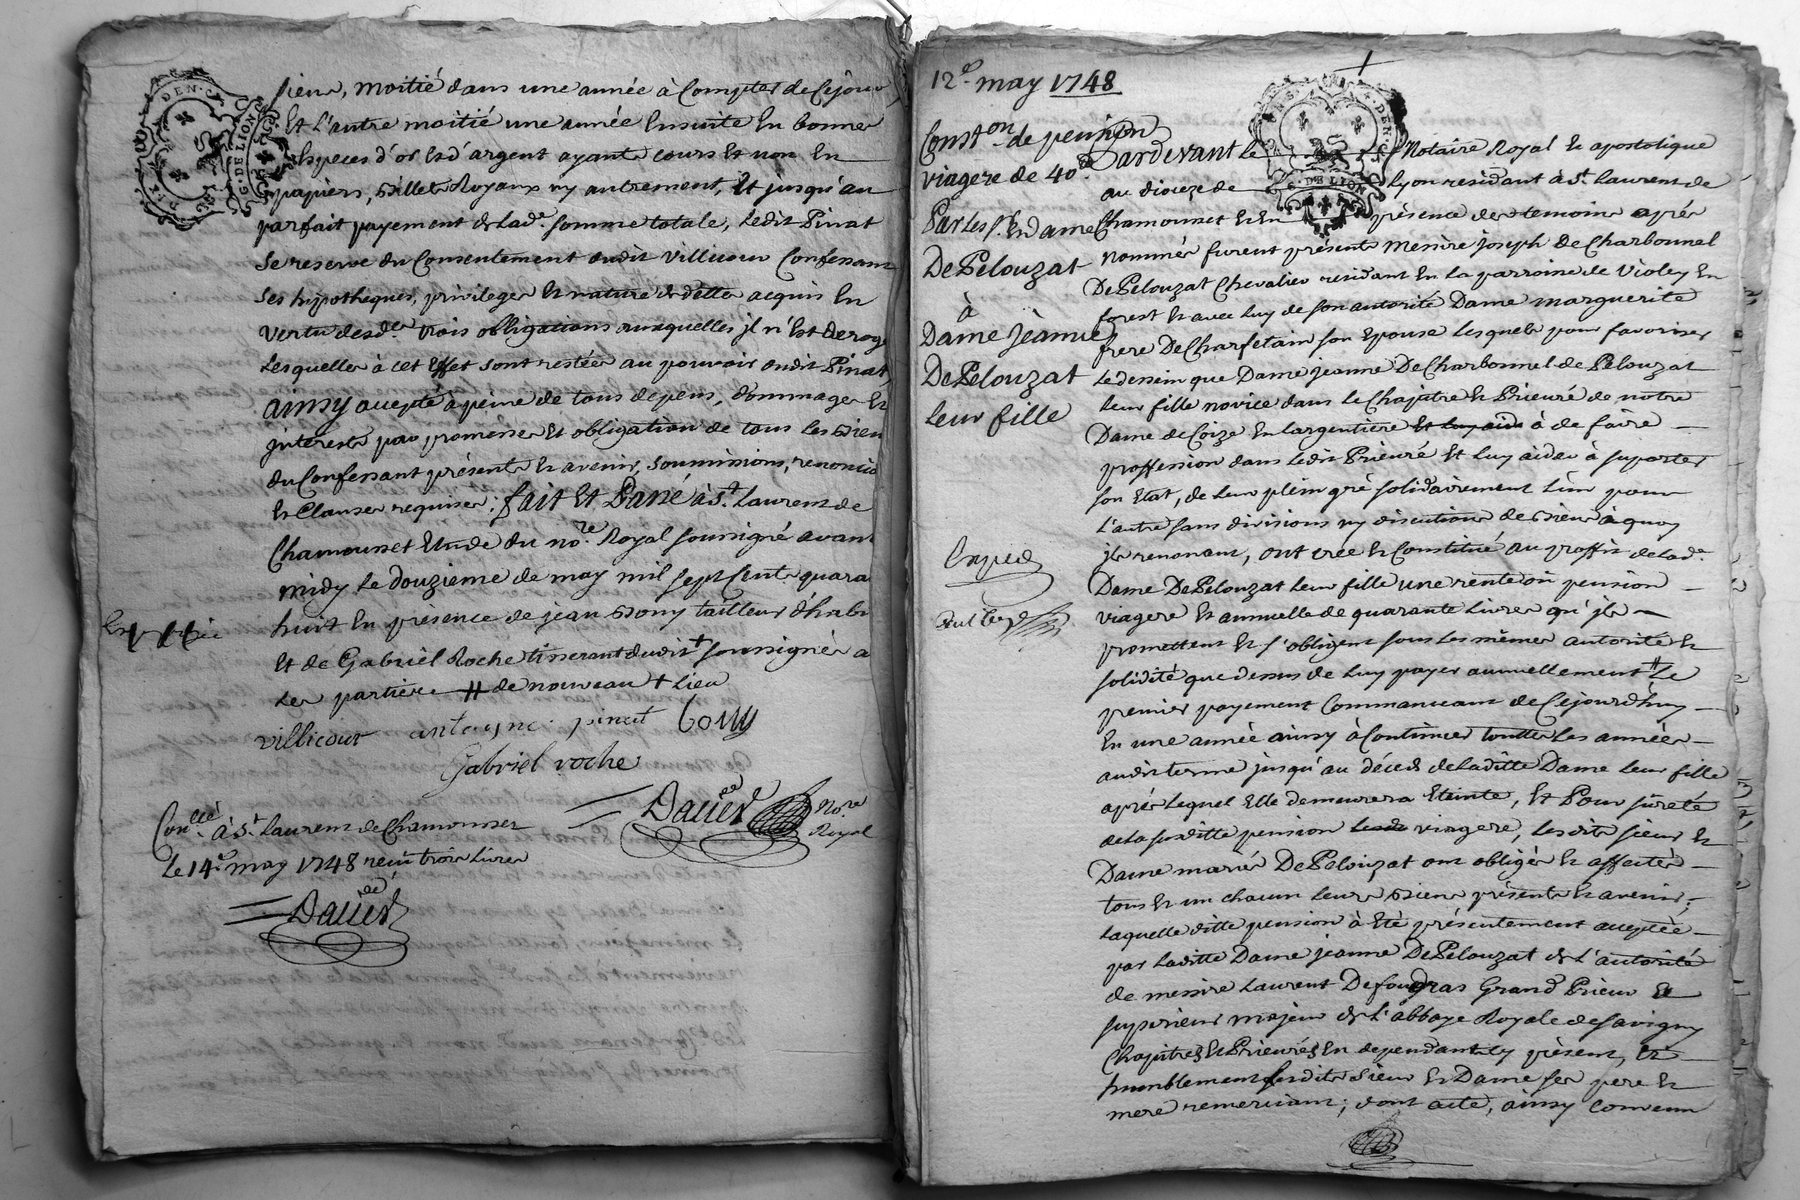 siens, moitié dans une année à Compter de Cejour
Et L'autre moitié une année Ensuite En bonnes
Especes d'or Et d'argent ayants cours Et non En
papiers, Billets Royaux ny autrement, Et jusqu'au
parfait payement de Lad.e somme totale, Ledit Pinat
se reserve du Consentement dudit Villicour Confessant
ses hypotheques, privileges Et nature de dette acquis En
vertu desd.tes trois obligations auxquelles jl n'Est deroge
Lesquelles à cet Effet sont restées au pouvoir dudit Pinat,
ainsy acepté à peine de tous depens, dommages Et
interests par promesse Et obligation de tous les Biens
du Confessant présents Et avenir, soumissions, renontia
Et Clauses requises; fait Et Passé à S.t Laurent de
Chamousset Etude du no.re Royal soussigné avant
midy Le douzieme de may mil sept Cents quara
huit En présence de jean Bony tailleur d'habi
Et de Gabriel Roche tisserant dudit + soussignés a
Les parties # de nouveau + Lieu
villicour antoyne pinat bony
Gabriel roche
Daverde No.re Royal
Con.llé à S.t Laurent de Chamousset
Le 14.e may 1748 reçu trois Livres
Daverde
G. DE LION
12.e may 1748
Const.on de pension
viagere de 40.#
Par Les S.r Et dame
De Pelouzat
à
Dame Jeanne
De Pelouzat
leur fille
Expied
G. DE LION
Pardevant Le Notaire Royal Et apostolique
au dioceze de Lyon residant à S.t Laurent de
Chamousset Et En présence des temoins après
nommés furent présents Messire joseph de Charbonnel
De Pelouzat Chevalier residant En la parroisse de Violey En
forest Et avec Luy de son autorité Dame marguerite
frere De Charfetain son Epouse Lesquels pour favoriser
Le dessein que Dame jeanne De Charbonnel de Pelouzat
Leur fille novice dans Le Chapitre Et Prieuré de notre
Dame de Coize En Largentiere Et Luy aide à de faire
proffession dans Ledit Prieuré Et Luy aider à suporter
son Etat, de Leur plein gré solidairement L'un pour
L'autre sans divisions ny discution de Biens à quoy
jls renonçant, ont créé Et Constitué au proffit de Lad.e
Dame De Pelouzat Leur fille une rente ou pension
viagere Et annuelle de quarante Livres qu'jls
promettent Et s'obligent sous Les mêmes autorité Et
solidité que dessus de Luy payer annuellement # Le
premier payement Commancant de Cejourd'huy
En une année ainsy à Continuer touttes Les années
audit terme jusqu'au décès de Laditte Dame Leur fille
après Lequel Elle demeurera Eteinte, Et Pour sûreté
de La susditte pension viagere, Lesdits sieur Et
Dame mariés De Pelouzat ont obligés Et affectés
tous Et un chacun Leurs Biens présents Et avenir;
Laquelle ditte pension à Eté présentement aceptée
par Laditte Dame jeanne De Pelouzat de L'autorité
de messire Laurent De foudras Grand Prieur Et
superieur majeur de L'abbaye Royale de Savigny
Chapitres Et Prieurés En dependants y présent, Et
humblement Lesdits Sieur Et Dame ses pere Et
mere remerciant; dont acte, ainsy Convenu